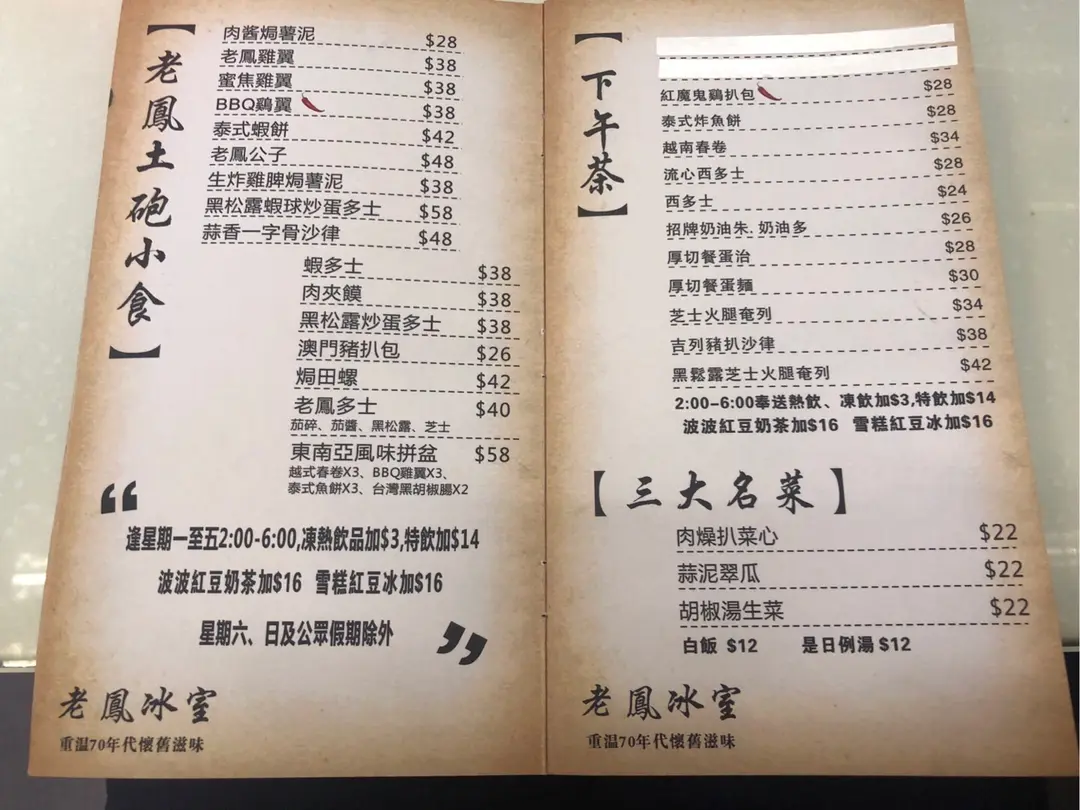 【老鳳土砲小食】
肉醬焗薯泥 $28
老鳳雞翼 $38
蜜焦雞翼 $38
BBQ鷄翼 $38
泰式蝦餅 $42
老鳳公子 $48
生炸雞脾焗薯泥 $38
黑松露蝦球炒蛋多士 $58
蒜香一字骨沙律 $48
蝦多士 $38
肉夾饃 $38
黑松露炒蛋多士 $38
澳門豬扒包 $26
焗田螺 $42
老鳳多士 $40
茄碎、茄醬、黑松露、芝士
東南亞風味拼盆 $58
越式春卷X3、BBQ雞翼X3、
泰式魚餅X3、台灣黑胡椒腸X2
“
逢星期一至五2:00-6:00,凍熱飲品加$3,特飲加$14
波波紅豆奶茶加$16 雪糕紅豆冰加$16
星期六、日及公眾假期除外
”
老鳳冰室
重温70年代懷舊滋味
【下午茶】
紅魔鬼鷄扒包 $28
泰式炸魚餅 $28
越南春卷 $34
流心西多士 $28
西多士 $24
招牌奶油朱.奶油多 $26
厚切餐蛋治 $28
厚切餐蛋麵 $30
芝士火腿奄列 $34
吉列豬扒沙律 $38
黑鬆露芝士火腿奄列 $42
2:00-6:00奉送熱飲、凍飲加$3,特飲加$14
波波紅豆奶茶加$16 雪糕紅豆冰加$16
【三大名菜】
肉燥扒菜心 $22
蒜泥翠瓜 $22
胡椒湯生菜 $22
白飯 $12 是日例湯 $12
老鳳冰室
重温70年代懷舊滋味